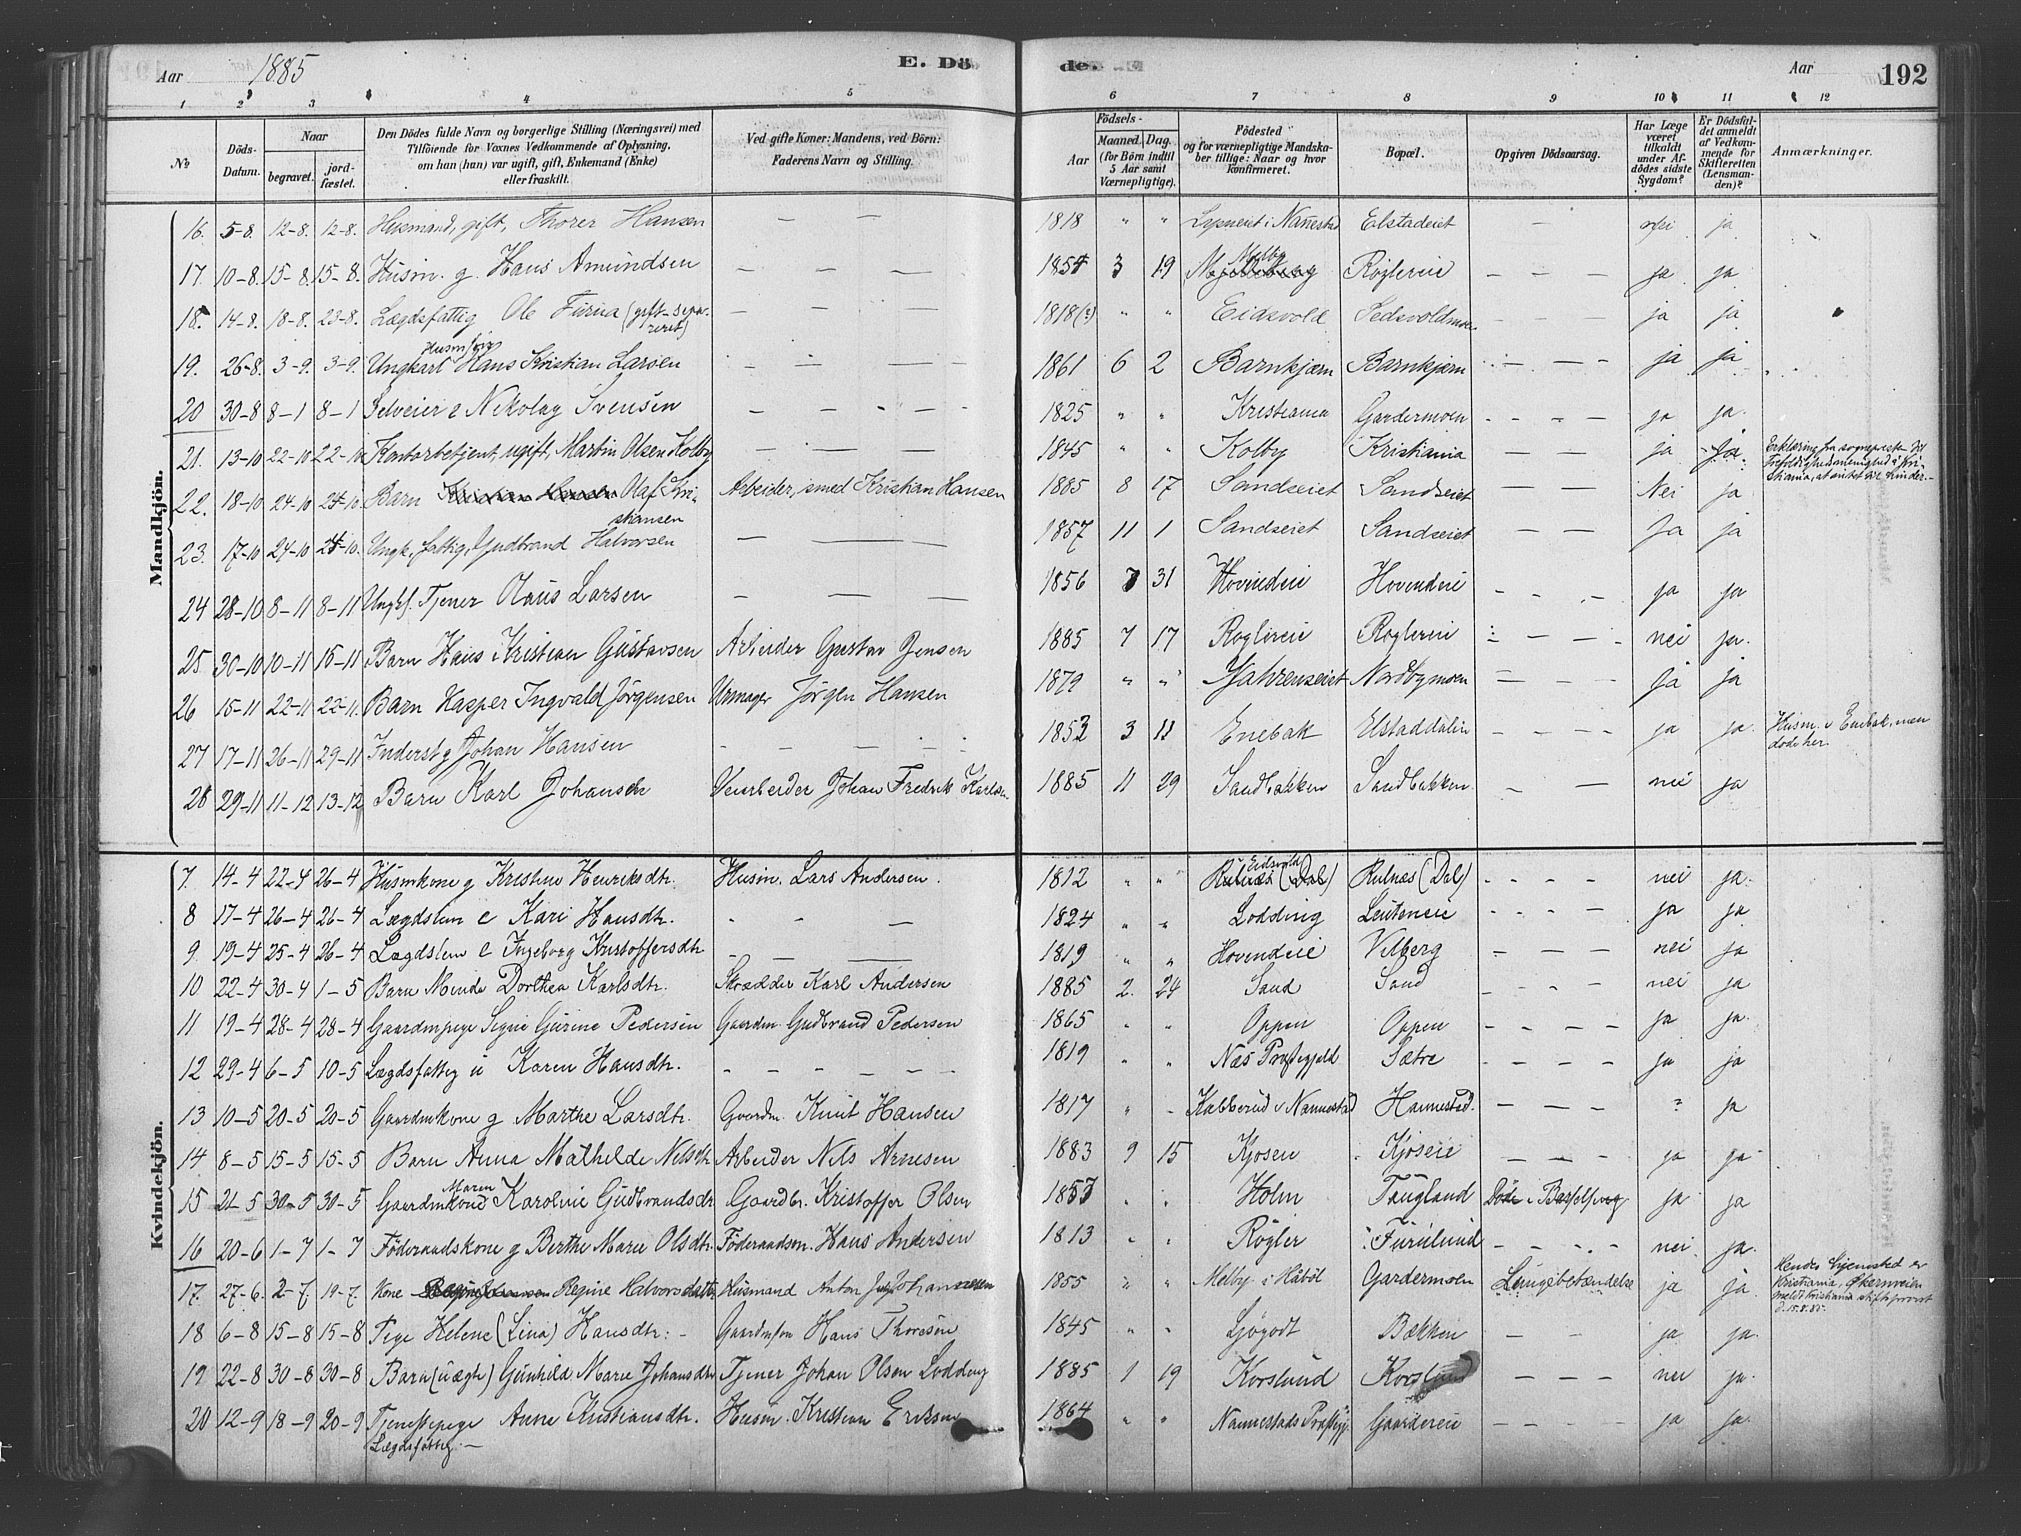 Aar 1885 E. Dö de. Aar 192
1 2 3 4 5 6 7 8 9 10 11 12
No Döds-Datum. Naar begravet. jord-fæstet. Den Dödes fulde Navn og borgerlige Stilling (Næringsvei) med Tilföiende for Voxnes Vedkommende af Oplysning, om han (hun) var ugift, gift, Enkemand (Enke) eller fraskilt. Ved gifte Koner: Mandens, ved Börn: Faderens Navn og Stilling. Födsels- Aar Maaned. Dag. (for Börn indtil 5 Aar samt Værnepligtige). Födested og for værnepligtige Mandskaber tillige: Naar og hvor konfirmeret. Bopæl. Opgiven Dödsaarsag. Har Læge været tilkaldt under Afdödes sidste Sygdom? Er Dödsfaldet anmeldt af Vedkommende for Skifteretten (Lensmanden)? Anmærkninger.
Mandkjön.
16. 5-8. 12-8. 12-8. Husmand, gift, Thorer Hansen — — — 1818 " " i Nannestad Elstadeiet — nei ja
17. 10-8. 15-8. 15-8. Husm. g. Hans Amundsen — — — 1854 3 19 Melby Röglereie — — — ja ja
18. 14-8. 18-8. 23-8. Lægdsfattig Ole Furua (gift-separeret) — — — 1818(?) " " Eidsvold — — — ja ja
19. 26-8. 3-9. 3-9. Ungkarl Hans Kristian Larsen — — — 1861 6 2 Barnkjærn Barnkjærn — — — ja ja
20 30-8 8-1 8-1 Selveier e Nikolay Svensen — — — 1825 " " Kristiania Gardermoen — — — ja ja.
21. 13-10 22-10 22-10 Kontorbetjent, ugift, Martin Olsen Kolby 1845 " " Kolby Kristiania ja ja. Erklæring fra sognepresten til Trefoldighedsmenighed i Kristiania, at intet til hinder.
22. 18-10 24-10 24-10 Barn Olaf Kristiansen Arbeider, smed Kristian Hansen 1885 8 17 Sandseiet Sandseiet — — Nei ja
23. 17-10 24-10 24-10. Ungk, fattig, Gudbrand Halvorsen — — — 1857 11 1 Sandseiet Sandseiet — — Ja ja
24 28-10 8-11 8-11 Ungkf. Tjener Olaus Larsen — — — — 1856 7 31 Hovindeie Hovindeie — — — ja ja
25. 30-10 10-11 15-11 Barn Hans Kristian Gustavsen Arbeider Gustav Jensen 1885 7 17 Roglereie Roglereie — — — nei ja.
26 15-11 22-11 22-11. Barn Kasper Ingvald Jörgensen Urmager Jörgen Hansen 1879 " " Nordbymoen — — ja ja
27 17-11 26-11 29-11 Inderst g Johan Hansen — — — — 1852 3 11 Enebak Elstaddalen — — — ja ja. Husm. i Enebak, men döde her.
28 29-11 11-12 13-12 Barn Karl Johansen Veiarbeider Johan Fredrik Karlsen 1885 11 29 Sandbakken Sandbakken — — nei ja
Kvindekjön.
7. 14-4 22-4 26-4 Husmkone g Kristine Henriksdtr. Husm. Lars Andersen. 1812 " " Eidsvold (Dal) Rulnæs (Dal) — — — — nei ja.
8 17-4 26-4 26-4 Lægdslem e Kari Hansdtr. — — — 1824 " " Lodding Leuteneie — — — — ja ja
9. 19-4 25-4 26-4 Lægdslem e Ingeborg Kristoffersdtr — — — 1819 " " Hovendeie Vilberg — — — nei ja
10 22-4 30-4 1-5 Barn Minda Dorthea Karlsdtr. Skrædder Karl Andersen 1885 2. 24 Sand Sand — — — nei ja
11 19-4 28-4 28-4 Gaardmpige Signe Gurine Pedersen Gaardm. Gudbrand Pedersen 1865 " " Oppen Oppen — — — — ja ja.
12 29-4 6-5 10-5 Lægdsfattig u Karen Hansdtr. — — — — — — 1819 " " Næs Præstegjeld Sætre — — — — ja ja
13 10-5 20-5 20-5 Gaardmkone g Marthe Larsdtr. Gaardm. Knut Hansen 1817 " - Kabberud i Nannestad Hannestad. — — — ? ja
14 8-5 15-5 15-5 Barn Anna Mathilde Nilsdtr Arbeider Nils Arnesen 1883 9 15 Kjosen Kjoseie — — — ja ja
15 21-5 30-5 30-5 Gaardmkone Maren Karoline Gudbrandsdtr Gaardbr. Kristoffer Olsen 1857 " " Holm Taugland Döde i Barselseng ja ja
16 20-6 1-7 1-7 Föderaadskone g Berthe Marie Olsdtr. Föderaadsm. Hans Andersen 1813 " " Rögler Furulund — — — — nei ja.
17. 27-6. 2-7. 19-7. Kone Regine Halvorsdatter Husmand Anton Johannesen 1855 " " Melby i Haböl Gardermoen Lungebetændelse ja ja. Hendes hjemsted er Kristiania, Økernveien meldt Kristiania stiftsprovst d. 15.8.85.
18 6-8 15-8 15-8 Pige Helene (Lina) Hansdtr: — Hans Thoresen 1845 " " Sjøgodt Bækken — — ja ja.
19 22-8 30-8 30-8 Barn (uægte) Gunhild Marie Johansdtr Tjener Johan Olsen Lodding 1885 1 19 Korslund Korslund — — — — nei ja.
20 12-9 18-9 20-9 Tjenestepige Anne Kristiansdtr. Husm. Kristian Eriksen 1864 " " Nannestads Præstgj. Gaardereie — — — — ja ja.
Lægdsfattig. —